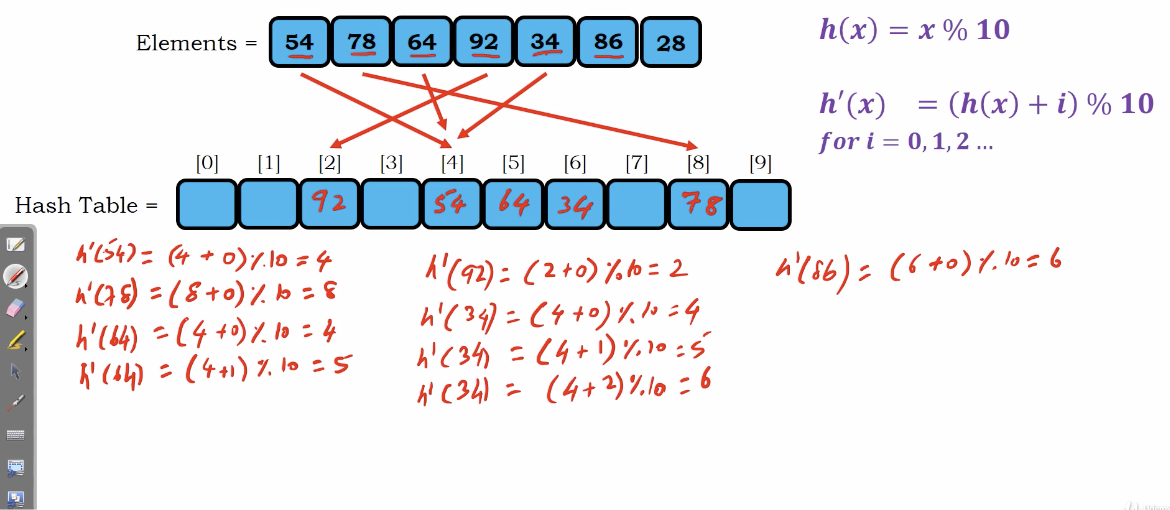 Elements = 54 78 64 92 34 86 28
h(x) = x % 10
h'(x) = (h(x) + i) % 10
for i = 0, 1, 2 ...
[0] [1] [2] [3] [4] [5] [6] [7] [8] [9]
Hash Table = 92 54 64 34 78
h'(54) = (4 + 0) % 10 = 4
h'(78) = (8 + 0) % 10 = 8
h'(64) = (4 + 0) % 10 = 4
h'(64) = (4+1) % 10 = 5
h'(92) = (2+0) % 10 = 2
h'(34) = (4+0) % 10 = 4
h'(34) = (4+1) % 10 = 5
h'(34) = (4+2) % 10 = 6
h'(86) = (6+0) % 10 = 6